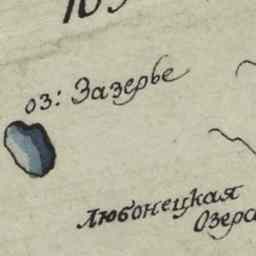 оз: Зазерье
Любонецкая
Озера